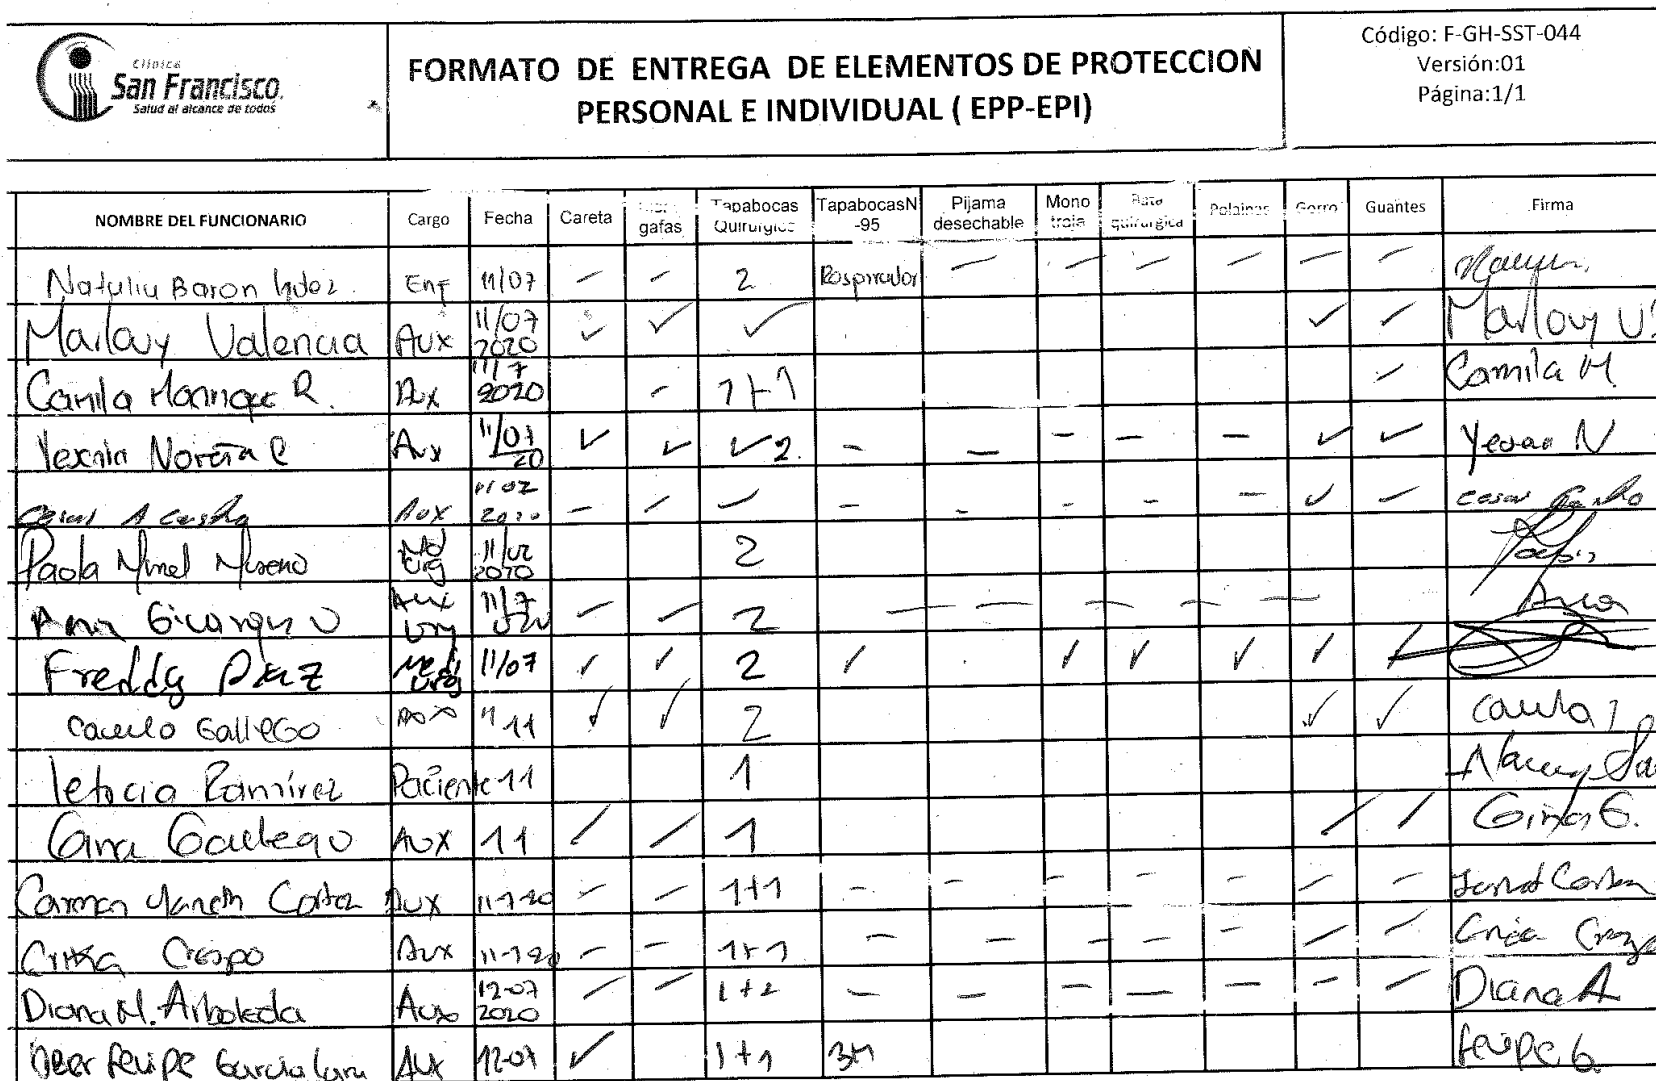 Clínica
San Francisco.
Salud al alcance de todos
FORMATO DE ENTREGA DE ELEMENTOS DE PROTECCION
PERSONAL E INDIVIDUAL ( EPP-EPI)
Código: F-GH-SST-044
Versión:01
Página:1/1
NOMBRE DEL FUNCIONARIO Cargo Fecha Careta gafas Tapabocas Quirurgico TapabocasN-95 Pijama desechable Mono traje Bata quirurgica Polainas Gorro Guantes Firma
Natalia Baron Enf 11/07 - - 2 Respirador - - - - - -
Marlovy Valencia Aux 11/07 2020 ✓ ✓ ✓ ✓ - Marlovy V.
Camila Manrique R. Aux 11/7 2020 - 1+1 - Camila M.
Aux 11/07 20 ✓ ✓ ✓2. - - - - - ✓ ✓ N
Cesar A Aux 2020 - - - - - - - - ✓ - cesar
Paola Moreno Md Urg 2020 2
Ana Aux Urg 11/7 - - 2 - - - - - Ana
Freddy Diaz Medi Urg 11/07 ✓ ✓ 2 ✓ ✓ ✓ ✓ ✓ ✓
Gallego 11 ✓ ✓ 2 ✓ ✓
Leticia Ramírez Paciente 11 1
Gina Gallego Aux 11 / / 1 / / Gina G.
Carmen Yaneth Aux 11-7-20 - - 1+1 - - - - - - -
Erika Crespo Aux 11-7-20 - - 1+1 - - - - - - -
Diana M. Arboleda Aux 12-07 2020 - - 1+2 - - - - - - - Diana A
Felipe Garcia Aux 12-07 ✓ 1+1 Felipe G